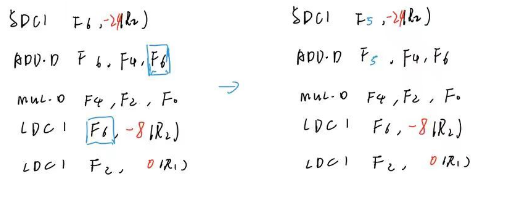 SDC1 F6, -24(R2)
ADD.D F6, F4, F6
MUL.D F4, F2, F0
LDC1 F6, -8(R2)
LDC1 F2, 0(R1)
→
SDC1 F5, -24(R2)
ADD.D F5, F4, F6
MUL.D F4, F2, F0
LDC1 F6, -8(R2)
LDC1 F2, 0(R1)